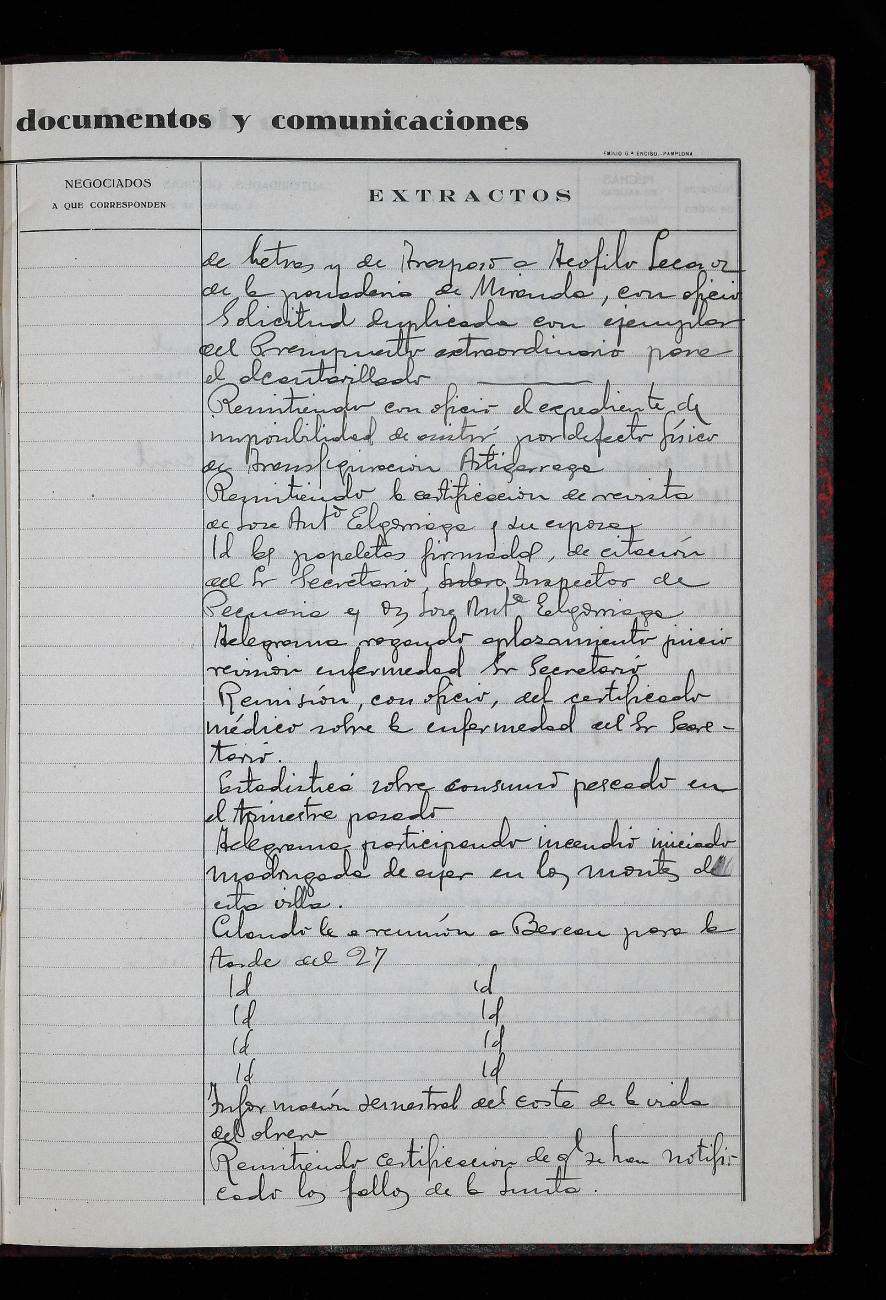 documentos y comunicaciones
EMILIO G.ª ENCISO.-PAMPLONA
NEGOCIADOS
A QUE CORRESPONDEN
EXTRACTOS
de letras y de Traspaso a Teofilo
de la panaderia de Miranda, con oficio
Solicitud duplicada con ejemplar
del Presupuesto extraordinario para
el alcantarillado
Remitiendo con oficio el expediente de
imposibilidad de asistir por defecto físico
de Transfiguracion Astigarraga
Remitiendo la certificacion de revista
de Jose Antº Elgorriaga y su esposa
Id las papeletas firmadas, de citación
del Sr Secretario, Inspector de
Pecuaria y Dn Jose Antº Elgorriaga
Telegrama rogando aplazamiento juicio
revision enfermedad Sr Secretario
Remisión, con oficio, del certificado
médico sobre la enfermedad del Sr Secre-
tario.
Estadistica sobre consumo pescado en
el trimestre pasado
Telegrama participando incendio iniciado
madrugada de ayer en los montes de
esta villa.
Citando le a reunión a Bereau para la
tarde del 27
Id Id
Id Id
Id Id
Id Id
Información semestral del coste de la vida
del obrero
Remitiendo certificacion de ql se han notifi-
cado los fallos de la Junta.